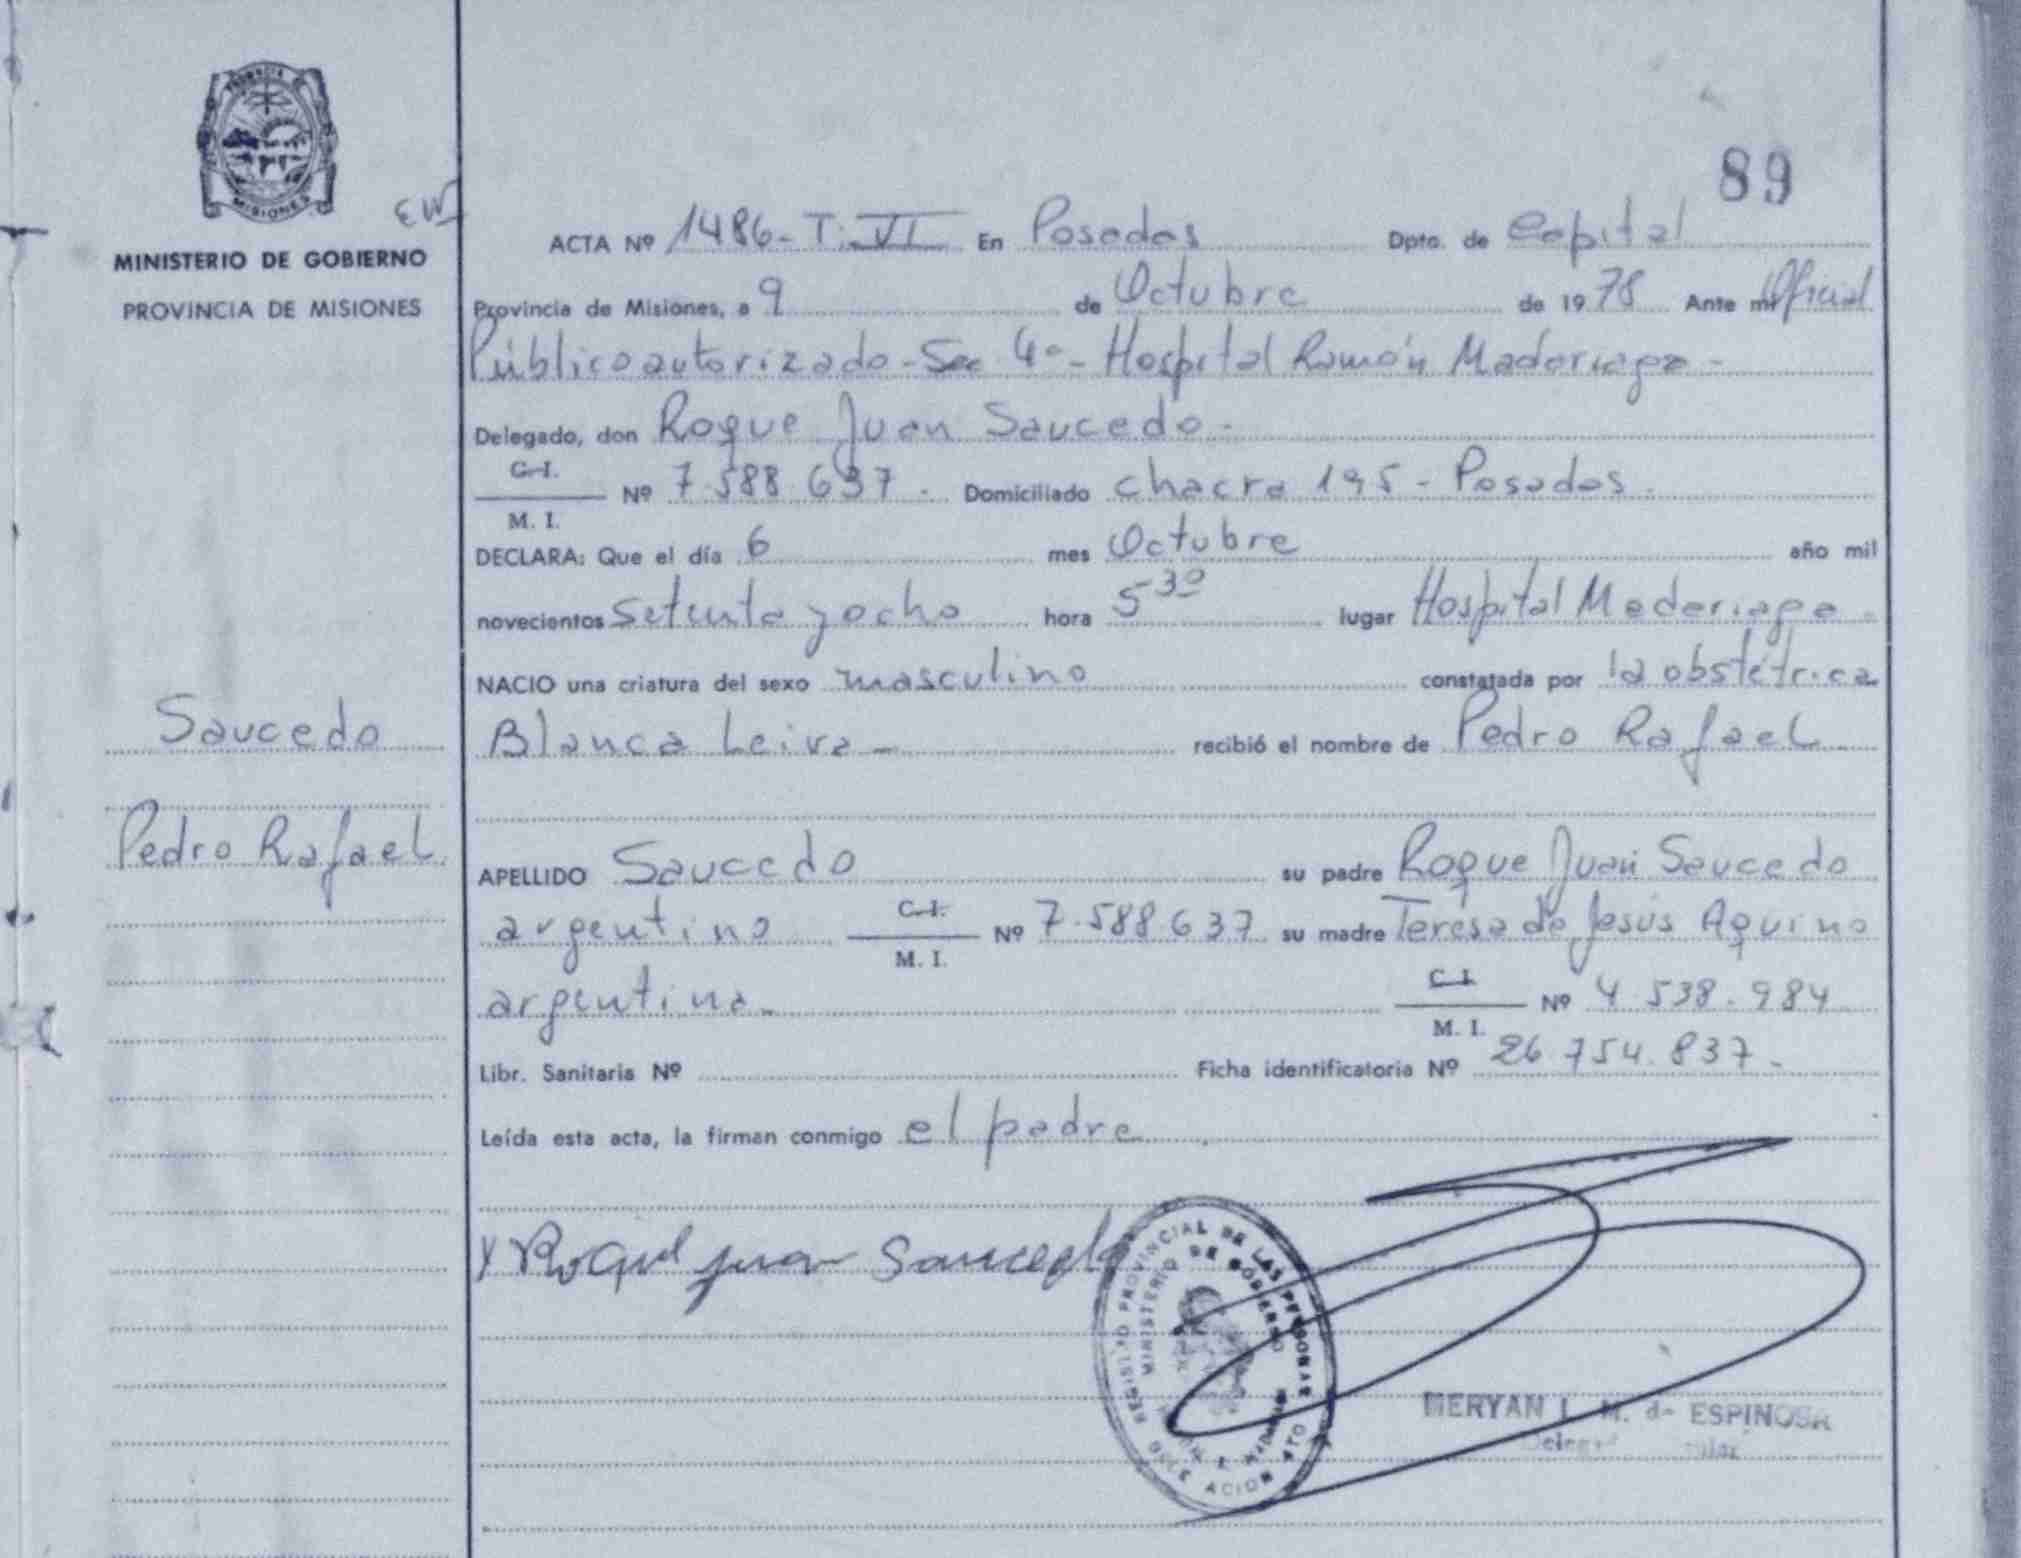 PROVINCIA DE
MISIONES
MINISTERIO DE GOBIERNO
PROVINCIA DE MISIONES
EW
Saucedo
Pedro Rafael
89
ACTA Nº 1486-T.VI En Posadas Dpto. de Capital
Provincia de Misiones, a 9 de Octubre de 1978 Ante mi Oficial
Público autorizado - Sec 4º - Hospital Ramón Madariaga -
Delegado, don Roque Juan Saucedo -
C.I. M. I. Nº 7.588.637. Domiciliado chacra 195 - Posadas.
DECLARA: Que el día 6 mes Octubre año mil
novecientos setenta y ocho hora 5 30 lugar Hospital Madariaga -
NACIO una criatura del sexo masculino constatada por la obstétrica
Blanca Leiva - recibió el nombre de Pedro Rafael
APELLIDO Saucedo su padre Roque Juan Saucedo
argentino C.I. M. I. Nº 7.588.637 su madre Teresa de Jesús Aquino
argentina - C.I. M. I. Nº 4.538.984
Libr. Sanitaria Nº Ficha identificatoria Nº 26.754.837.-
Leída esta acta, la firman conmigo el padre
x Roque juan Saucedo
REGISTRO PROVINCIAL DE LAS PERSONAS
MINISTERIO DE GOBIERNO
MERYAN I. M. de ESPINOSA